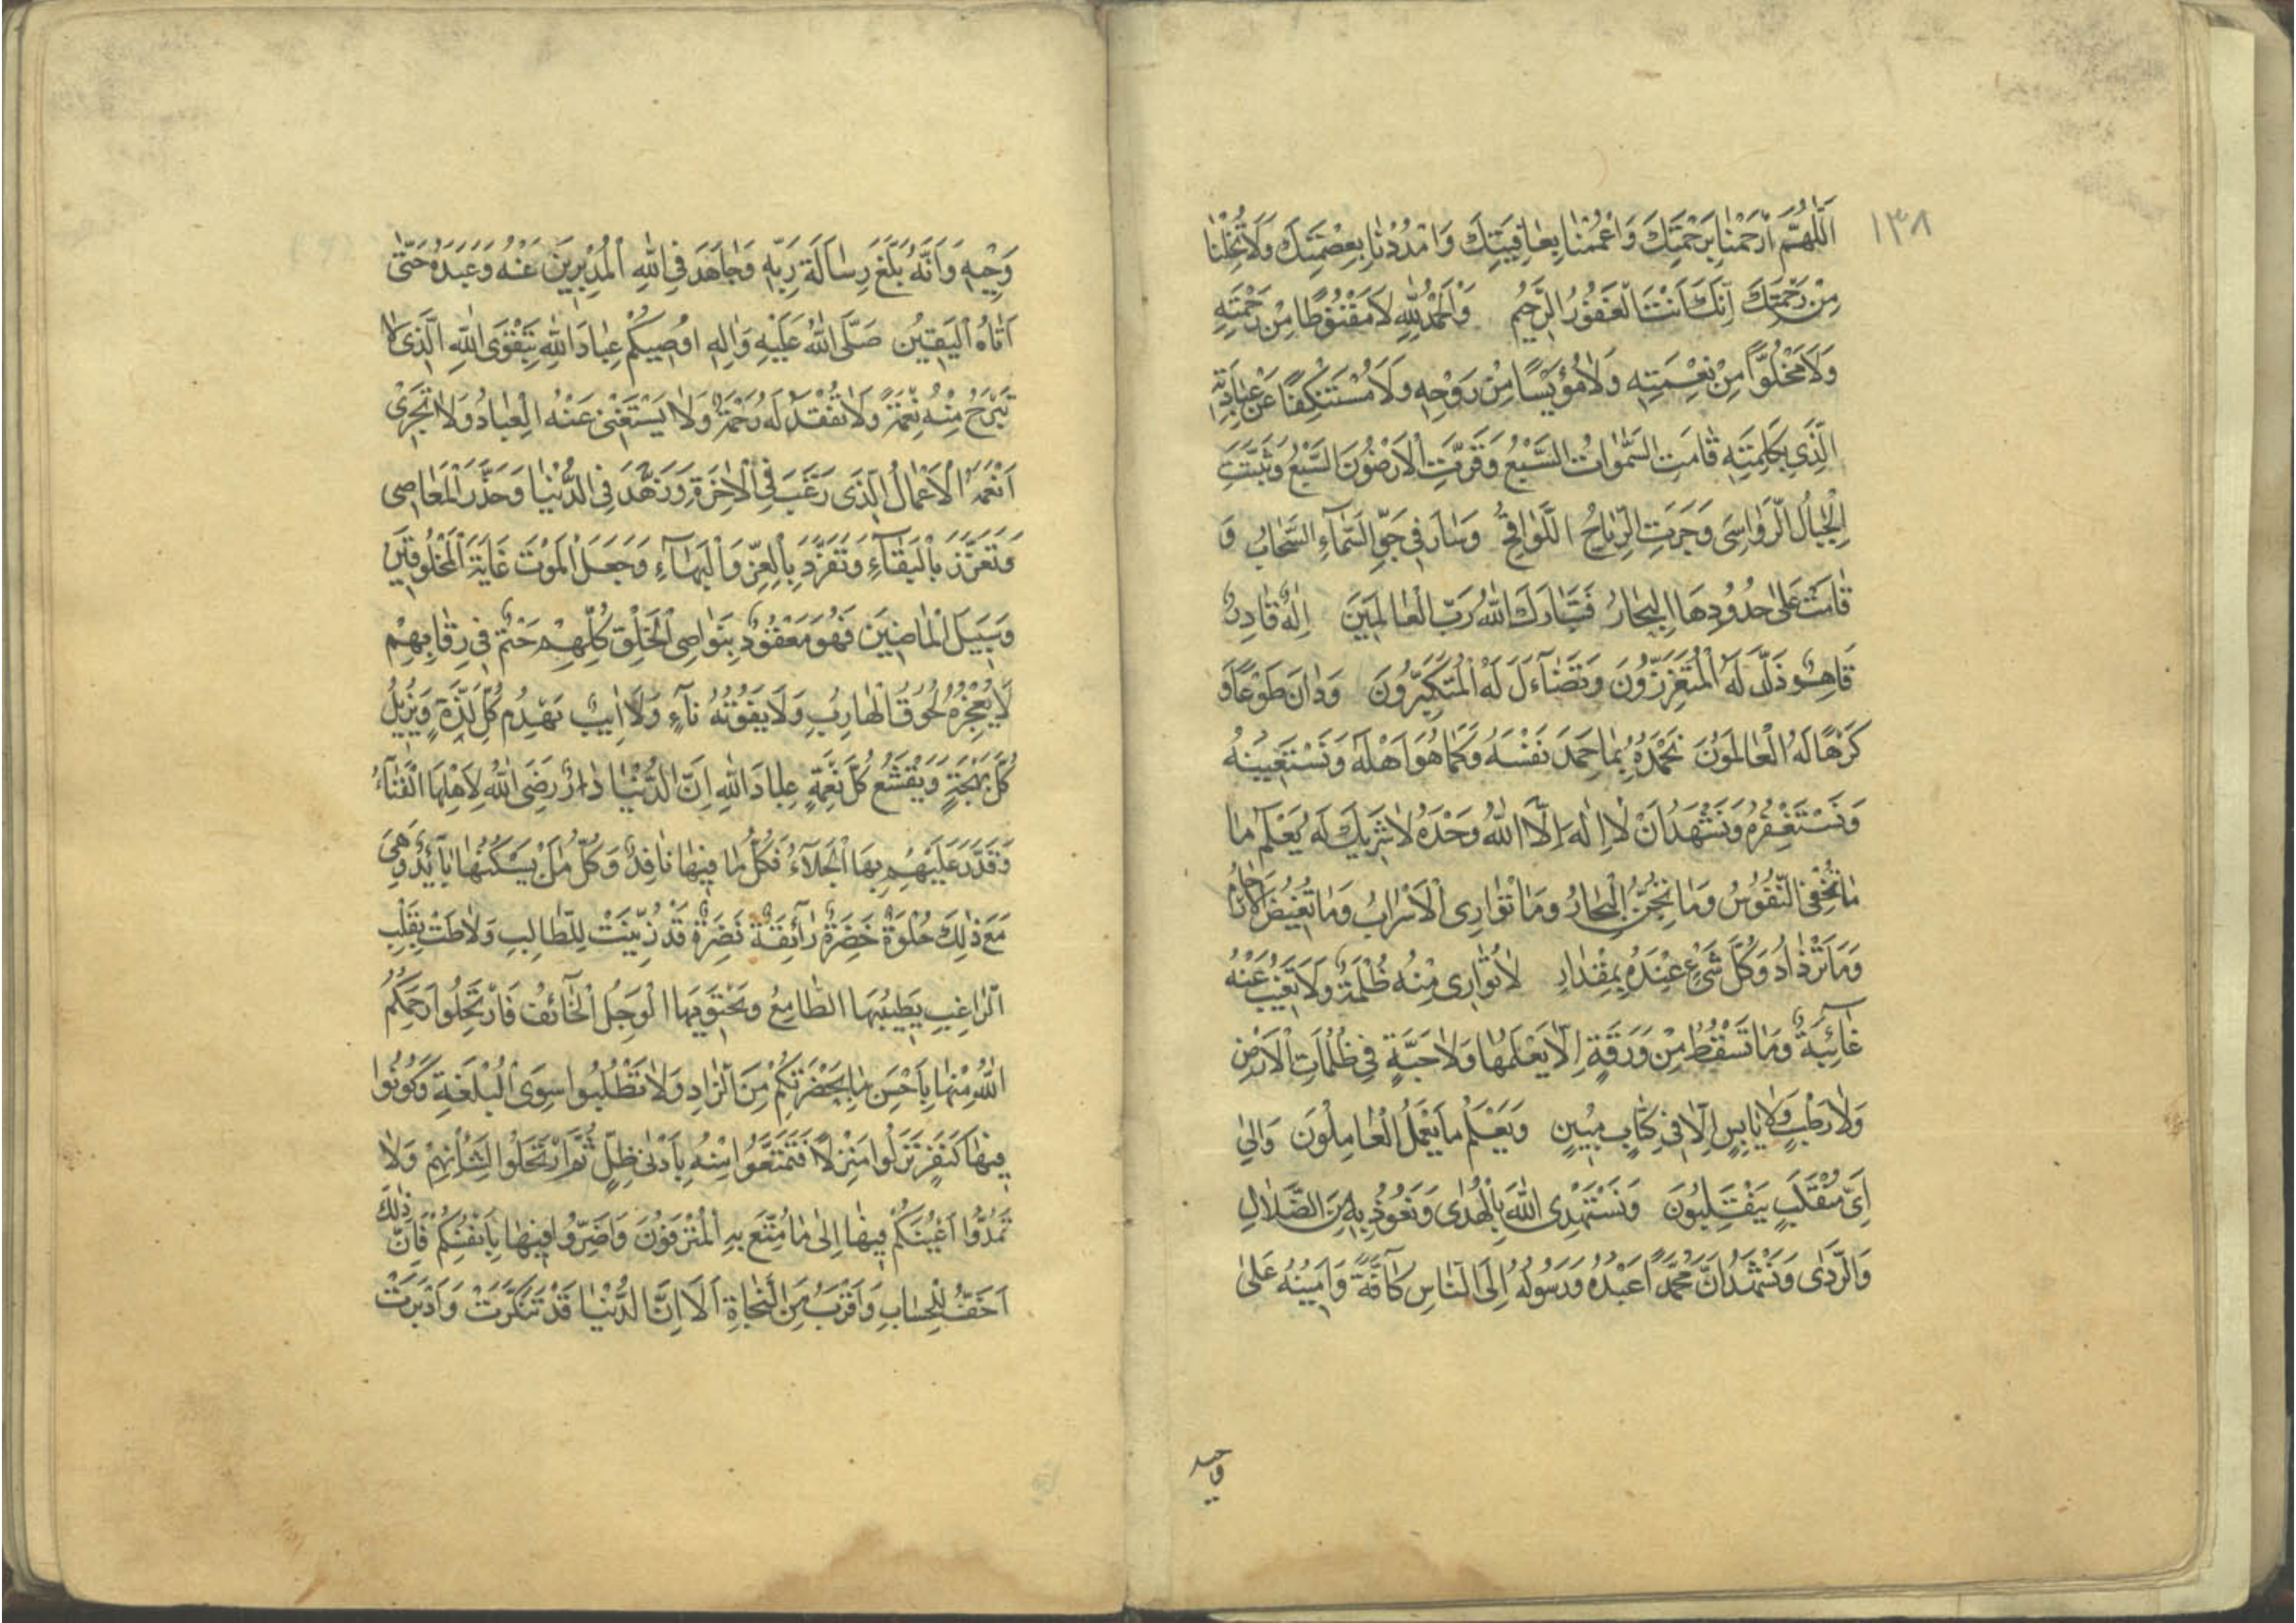 ١٣٨
اَللّٰهُمَّ ارْحَمْنٰا بِرَحْمَتِكَ وَاعْمُمْنٰا بِعٰافِيَتِكَ وَامْدُدْنٰا بِعِصْمَتِكَ وَلَا تُخْلِنٰا
مِنْ رَحْمَتِكَ اِنَّكَ اَنْتَ الْغَفُورُ الرَّحِيْمُ وَالْحَمْدُ لِلّٰهِ لَا مَقْنُوطًا مِنْ رَحْمَتِهِ
وَلَا مَخْلُوًّا مِنْ نِعْمَتِهِ وَلَا مُؤْيَسًا مِنْ رَوْحِهِ وَلَا مُسْتَنْكِفًا عَنْ عِبٰادَتِهِ
الَّذِي بِكَلِمَتِهِ قٰامَتِ السَّمٰوٰاتُ السَّبْعُ وَقَرَّتِ الْاَرَضُونَ السَّبْعُ وَثَبَتَتِ
الْجِبٰالُ الرَّوٰاسِىَ وَجَرَتِ الرِّيٰاحُ اللَّوٰاقِحُ وَسٰارَ فِي جَوِّ السَّمٰآءِ السَّحٰابُ وَ
قٰامَتْ عَلٰى حُدُودِهَا الْبِحٰارُ فَتَبٰارَكَ اللّٰهُ رَبُّ الْعٰالَمِيَنَ اِلٰهٌ قٰادِرٌ
قٰاهِرٌ ذَلَّ لَهُ الْمُتَعَزِّزُونَ وَتَضٰآءَلَ لَهُ الْمُتَكَبِّرُونَ وَدٰانَ طَوْعًا وَ
كَرْهًا لَهُ الْعٰالَمُونَ نَحْمَدُهُ بِمٰا حَمِدَ نَفْسَهُ وَكَمٰا هُوَ اَهْلُهُ وَنَسْتَعِيْنُهُ
وَنَسْتَغْفِرُهُ وَنَشْهَدُ اَنْ لٰا اِلٰهَ اِلَّا اللّٰهُ وَحْدَهُ لٰا شَرِيْكَ لَهُ يَعْلَمُ مٰا
مٰا تُخْفِى النُّفُوسُ وَمٰا تُجِنُّ الْبِحٰارُ وَمٰا تُوٰارِى الْاَسْرٰابُ وَمٰا تَغِيْضُ الْاَرْحٰامُ
وَمٰا تَزْدٰادُ وَكُلُّ شَىْءٍ عِنْدَهُ بِمِقْدٰارٍ لٰا تُوٰارِى مِنْهُ ظُلْمَةٌ وَلَا تَغِيْبُ عَنْهُ
غٰآئِبَةٌ وَمٰا تَسْقُطُ مِنْ وَرَقَةٍ اِلّٰا يَعْلَمُهٰا وَلٰا حَبَّةٍ فِي ظُلُمٰاتِ الْاَرْضِ
وَلٰا رَطْبٍ وَلٰا يٰابِسٍ اِلّٰا فِي كِتٰابٍ مُبِيْنٍ وَيَعْلَمُ مٰا يَعْمَلُ الْعٰامِلُونَ وَاِلٰى
اَىِّ مُنْقَلَبٍ يَنْقَلِبُونَ وَنَسْتَهْدِى اللّٰهَ بِالْهُدٰى وَنَعُوذُ بِهِ مِنَ الضَّلٰالِ
وَالرَّدٰى وَنَشْهَدُ اَنَّ مُحَمَّدًا عَبْدُهُ وَرَسُولُهُ اِلَى النّٰاسِ كٰآفَّةً وَاَمِيْنُهُ عَلٰى
وحيه
وَحْيِهِ وَاَنَّهُ بَلَّغَ رِسٰالَةَ رَبِّهِ وَجٰاهَدَ فِي اللّٰهِ الْمُدْبِرِيْنَ عَنْهُ وَعَبَدَهُ حَتّٰى
اَتٰاهُ الْيَقِيْنُ صَلَّى اللّٰهُ عَلَيْهِ وَاٰلِهِ اوُصِيْكُمْ عِبٰادَ اللّٰهِ بِتَقْوَى اللّٰهِ الَّذِى لٰا
تَبْرَحُ مِنْهُ نِعْمَةٌ وَلٰا تُفْقَدُ لَهُ رَحْمَةٌ وَلٰا يَسْتَغْنِى عَنْهُ الْعِبٰادُ وَلٰا تَجْزِى
اَنْعُمَهُ الْاَعْمٰالُ الَّذِى رَغَّبَ فِي الْاٰخِرَةِ وَزَهَّدَ فِي الدُّنْيٰا وَحَذَّرَ الْمَعٰاصِى
وَتَعَزَّزَ بِالْبَقٰآءِ وَتَفَرَّدَ بِالْعِزِّ وَالْبَهٰآءِ وَجَعَلَ الْمَوْتَ غٰايَةَ الْمَخْلُوقِيْنَ
وَسَبِيْلَ الْمٰاضِيْنَ فَهُوَ مَعْقُودٌ بِنَوٰاصِى الْخَلْقِ كُلِّهِمْ حَتْمٌ فِي رِقٰابِهِمْ
لَا يُعْجِزُهُ لُحُوقُ الْهٰارِبِ وَلَا يَفُوتُهُ نٰآءٍ وَلَا اٰيِبٌ يَهْدِمُ كُلَّ لَذَّةٍ وَيُزِيْلُ
كُلَّ بَهْجَةٍ وَيَقْشَعُ كُلَّ نِعْمَةٍ عِبٰادَ اللّٰهِ اِنَّ الدُّنْيٰا دٰارٌ رَضِىَ اللّٰهُ لِاَهْلِهَا الْفَنٰآءَ
وَقَدَّرَ عَلَيْهِمْ بِهَا الْجَلٰآءَ فَكُلُّ مٰا فِيْهٰا نٰافِدٌ وَكُلُّ مَنْ يَسْكُنُهٰا بٰآئِدٌ وَهِىَ
مَعَ ذٰلِكَ حُلْوَةٌ خَضِرَةٌ رٰآئِقَةٌ نَضِرَةٌ قَدْ زُيِّنَتْ لِلطّٰالِبِ وَلٰاطَتْ بِقَلْبِ
الرّٰاغِبِ يَطِيْبُهَا الطّٰامِعُ وَيَجْتَوِيْهَا الْوَجِلُ الْخٰآئِفُ فَارْتَحِلُوا رَحِمَكُمُ
اللّٰهُ مِنْهٰا بِاَحْسَنِ مٰا بِحَضْرَتِكُمْ مِنَ الزّٰادِ وَلٰا تَطْلُبُوا سِوَى الْبُلْغَةِ وَكُونُوا
فِيْهٰا كَنَفَرٍ نَزَلُوا مَنْزِلًا فَتَمَتَّعُوا مِنْهُ بِاَدْنٰى ظِلٍّ ثُمَّ ارْتَحَلُوا لِشَأْنِهِمْ وَلٰا
تَمُدُّوا اَعْيُنَكُمْ فِيْهٰا اِلٰى مٰا مُتِّعَ بِهِ الْمُتْرَفُونَ وَاَضِرُّوا فِيْهٰا بِاَنْفُسِكُمْ فَاِنَّ ذٰلِكَ
اَخَفُّ لِلْحِسٰابِ وَاَقْرَبُ مِنَ النَّجٰاةِ اَلَا اِنَّ الدُّنْيٰا قَدْ تَنَكَّرَتْ وَاَدْبَرَتْ